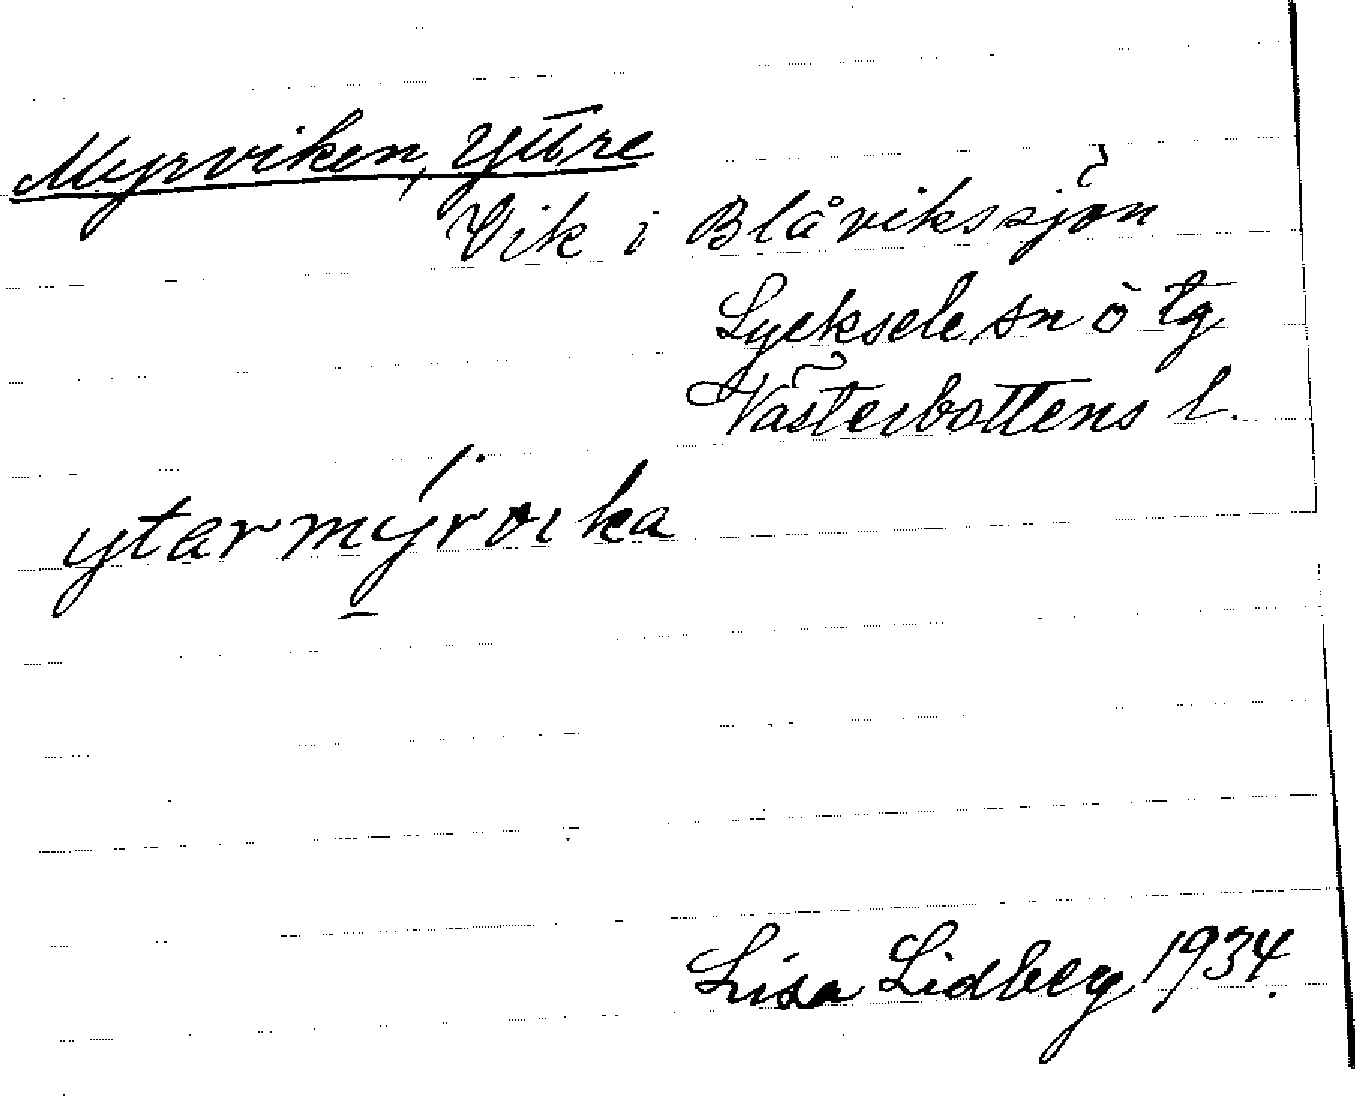 Myrviken, Yttre
Vik i Blåvikssjön
Lycksele sn o tg
Västerbottens l.
ytarmýrvika
Lisa Lidberg 1934.